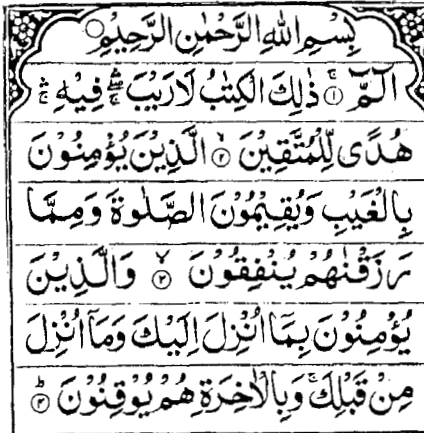 بِسْمِ اللهِ الرَّحْمٰنِ الرَّحِيْمِ
الٓمّٓ ۚ﴿۱﴾ ذٰلِكَ الْكِتٰبُ لَا رَيْبَ ۛۖۚ فِيْهِ ۛۚ
هُدًى لِّلْمُتَّقِيْنَ ۙ﴿۲﴾ الَّذِيْنَ يُؤْمِنُوْنَ
بِالْغَيْبِ وَيُقِيْمُوْنَ الصَّلٰوةَ وَمِمَّا
رَزَقْنٰهُمْ يُنْفِقُوْنَ ۙ﴿۳﴾ وَالَّذِيْنَ
يُؤْمِنُوْنَ بِمَآ اُنْزِلَ اِلَيْكَ وَمَآ اُنْزِلَ
مِنْ قَبْلِكَ ۚ وَبِالْاٰخِرَةِ هُمْ يُوْقِنُوْنَ ؕ﴿۴﴾